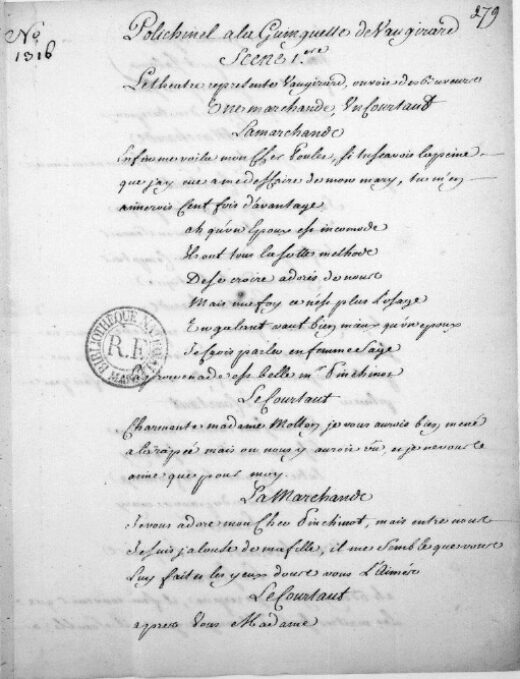 279
No
1316
Polichinel a la Guinguette de Vaugirard
Scene 1.ere
Le theatre represente Vaugirard, on voit des Buveurs
Une marchande, Un Courtaut
La marchande
Enfin me voila mon Cher Poulet, si tu scavois la peine
que j'ay eue a me deffaire de mon mary, tu m'en
aimerois Cent fois d'avantage
ah qu'un Epoux est incomode
Ils ont tous la sotte methode
De se croire adorés de nous
Mais ma foy ce n'est plus l'usage
Un galant vaut bien mieux qu'un epoux
Je scais parler en femme sage
la promenade est belle mr Pinchinot
Le Courtaut
Charmante madame Mollon je vous aurois bien mené
a la rapée mais on nous y auroit vu, et je ne vous
aime que pour moy.
La Marchande
Je vous adore mon Cher Pinchinot, mais entre nous
Je suis jalouse de ma fille, il me semble que vous
Luy faites les yeux doux vous L'aimés
Le Courtaut
apres Vous Madame
BIBLIOTHEQUE NATIONALE
R.F.
MAN